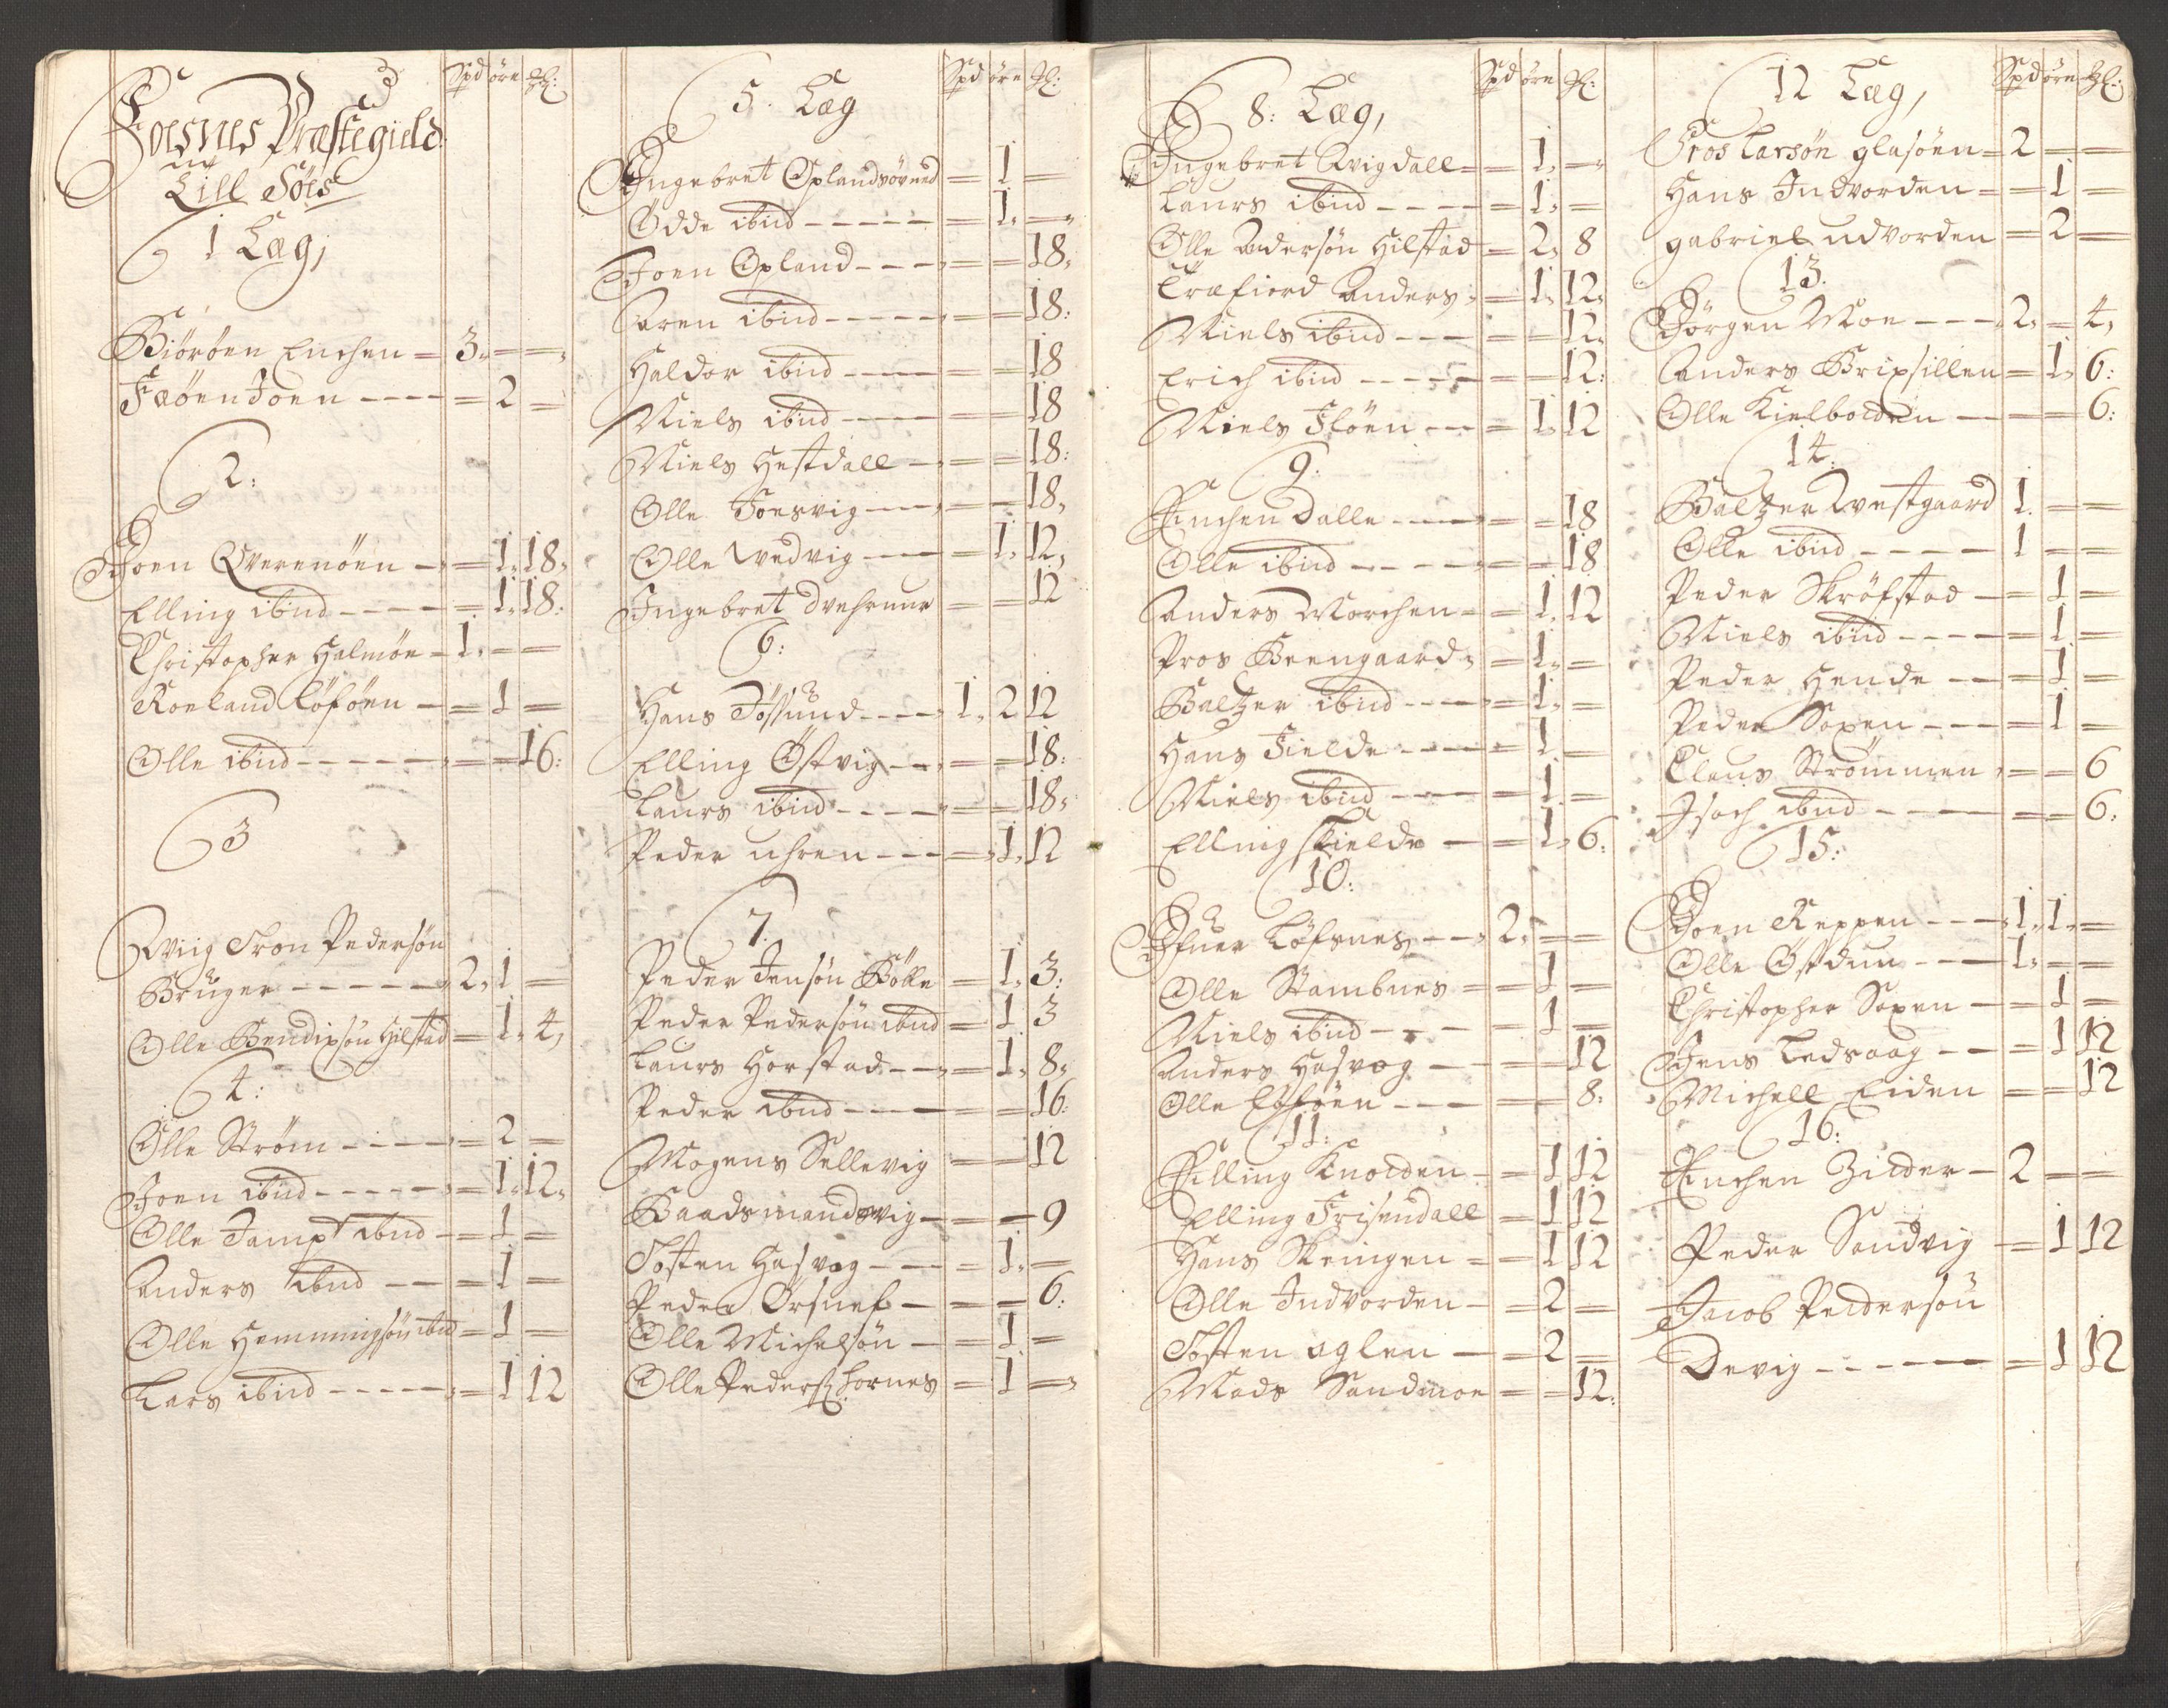 Spd öre Ml:
Foesnes Præstegield
Lill Föis
1 Læg,
Biöröen Enchen = 3. = =
Fæöen Joen ---- = 2 =
2:
Joen Qverenöen - = 1. 18.
Elling ibid ---- = 1. 18:
Christopher Halmöe - 1. = =
Roeland Löföen - = 1 =
Olle ibid ----- = = 16:
3
Qviig Tron Pedersön
Brüger ----- 2. 1 =
Olle Bendixsön Hilstad = 1. 4,
4:
Olle Ström ---- = 2 =
Joen ibid ----- = 1. 12.
Olle Jampt ibid - = 1 =
Anders ibid -- = 1 =
Olle Hemmingsön ibid = 1 =
Lars ibid ----- = 1 12
Spd öre Ml:
5. Læg
Ingebret Oplandsövned = 1 =
Odde ibid ----- = 1. =
Joen Opland --- = = 18,
Aren ibid ----- = = 18:
Haldor ibid ---- = = 18
Niels ibid ---- = = 18
Niels Hestdall -- = = 18:
Olle Joesvig --- = = 18,
Olle Wedvig --- = 1. 12,
Ingebret = = 12
6:
Hans Jössund ---- 1. 2 12
Elling Östvig --- = = 18:
Laurs ibid ---- = = 18:
Peder uhren --- = 1. 12
7.
Peder Jensön Bölle = 1. 3:
Peder Pedersön ibid = 1 3
Laurs Horstad --- = 1. 8,
Peder ibid ---- = = 16:
Mogens Sellevig = = 12
Baadsmandsvig - = = 9
Tosten Hasvog -- = 1. =
Peder Örsnes - = = 6:
Olle Michelsön - = 1 =
Olle Peders: hornes = 1 =
Spd öre Ml:
8: Læg,
Ingebret Qvigdall = = 1. =
Laurs ibid ---- = 1. =
Olle Andersön Hilstad = 2. 8
Træfiord Anders = 1. 12.
Niels ibid --- = = 12.
Erich ibid ----- = = 12:
Niels Flöen -- = 1. 12
9:
Enchen Dalle ---- = = 18
Olle ibid ---- = = 18
Anders Morchen = = 1. 12
Pros Beengaard = 1. =
Baltzer ibid ---- = 1. =
Hans Fielde ---- = 1. =
Niels ibid --- = 1. =
Elling Skielde - = 1. 6:
10:
Ifuer Löfsnes -- 2. = =
Olle Stambnes = = 1 =
Niels ibid --- = 1 =
Anders Hasvog -- = = 12
Olle --- = = 8:
11:
Elling Knolden - = 1 12
Elling Frisendall = 1 12
Hans Skringen = = 1 12
Olle Indvorden - = 2 =
Tosten aglen - = 2 =
Mads Sandmoe = = 12:
Spd öre Ml:
12 Læg,
Tros Larsön glasöen = 2 = =
Hans Indvorden = = 1 =
gabriel udvorden = 2 =
13.
Jörgen Moe --- 2. = 4,
Anders Brixsillen = 1. 6:
Olle Kielbolden - = = 6:
14:
Baltzer Westgaard 1. = =
Olle ibid ---- 1 = =
Peder Skröfstad - = 1 =
Niels ibid ---- = 1 =
Peder Hende -- = 1 =
Peder Soxen --- = 1 =
Claus Strömmen = = 6
Isach ibid --- = = 6:
15:
Joen Reppen --- 1. 1. =
Olle Östduu --- 1. = =
Christopher Soxen - = 1 =
Jens Ledsaag -- = 1 12
Michell Eiden = = 12
16:
Enchen Zidder - 2 = =
Peder Sandvig = 1 12
Jacob Pedersön
Devig ------ = 1 12